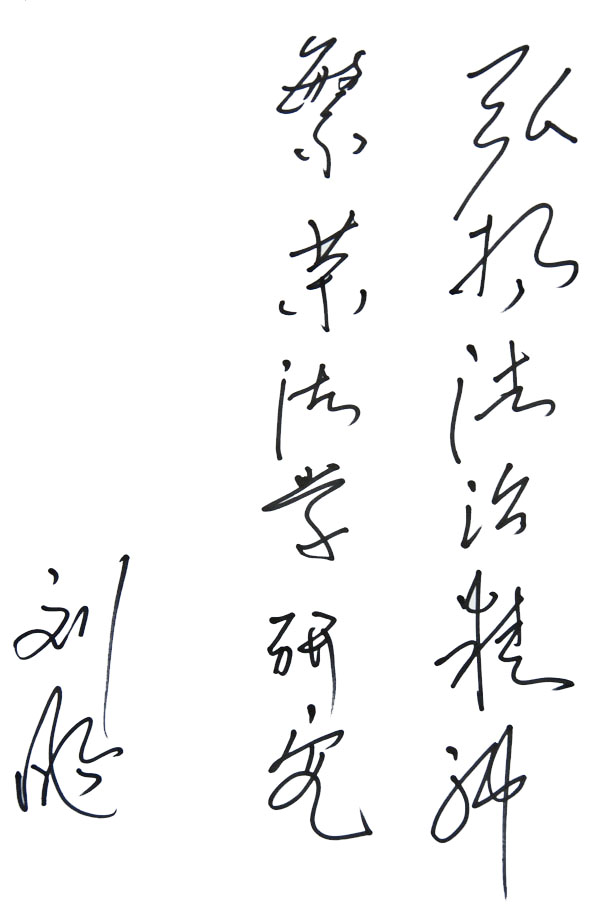 弘扬法治精神
繁荣法学研究
刘飏